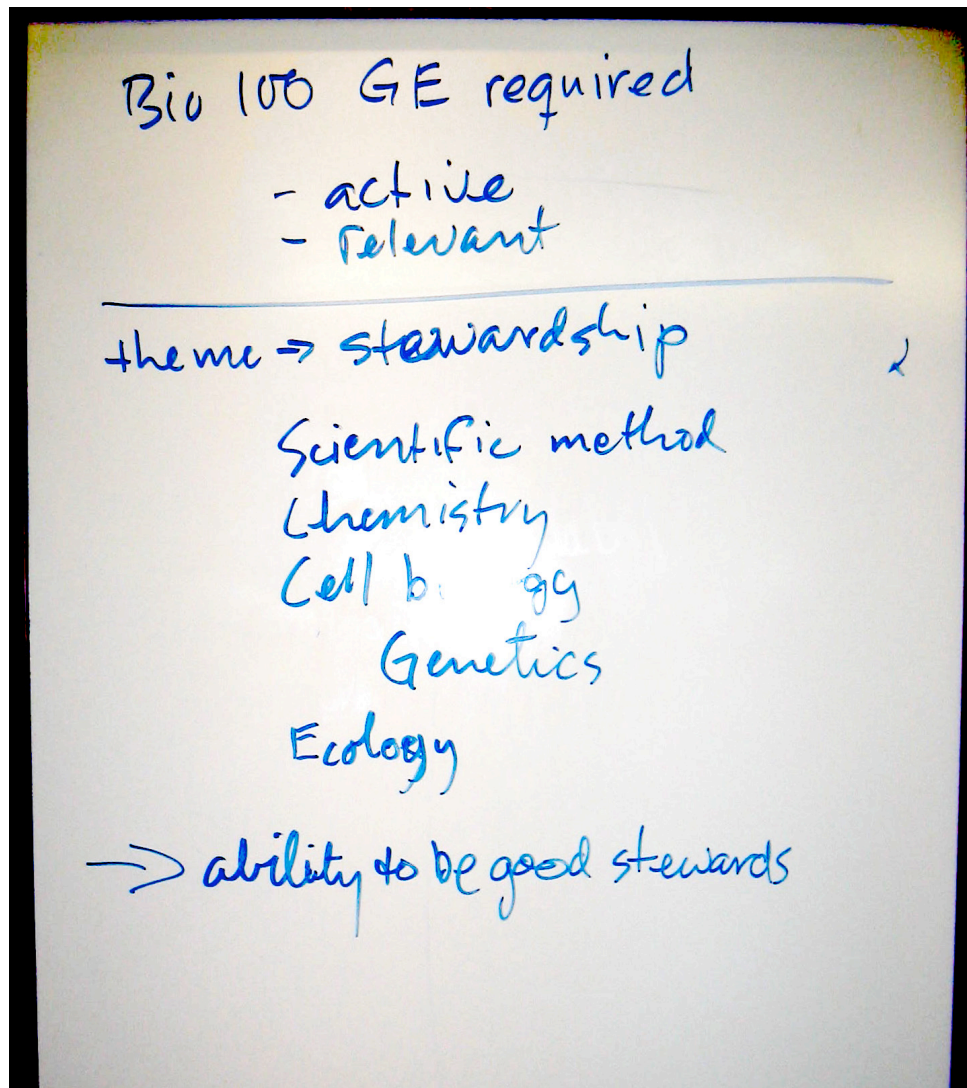 Bio 100 GE required
- active
- relevant
theme => stewardship
Scientific method
Chemistry
Cell biology
Genetics
Ecology
→ ability to be good stewards